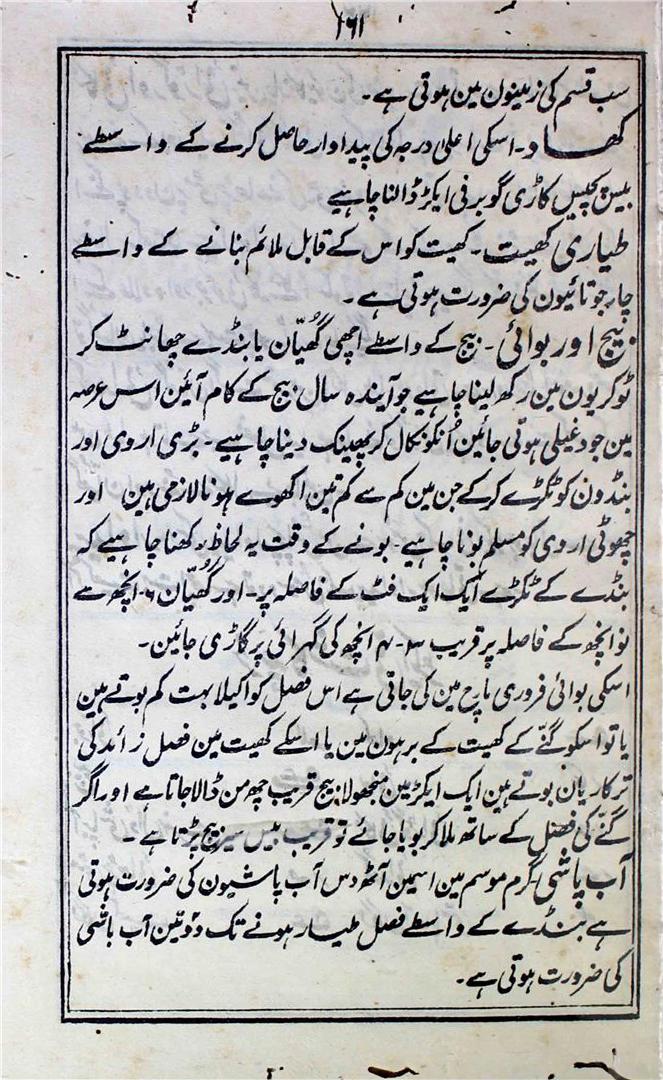 ۱۶۱
سب قسم کی زمینون مین ہوتی ہے۔
کھاد۔ اسکی اعلیٰ درجہ کی پیداوار حاصل کرنے کے واسطے
بیس پچیس گاڑی گوبر فی ایکڑ ڈالنا چاہیے
طیاری کھیت۔ کھیت کو اس کے قابل ملائم بنانے کے واسطے
چار جوتائیون کی ضرورت ہوتی ہے۔
بیج اور بوائی۔ بیج کے واسطے اچھی گھُیّان یا بنڈے چھانٹ کر
ٹوکریون مین رکھ لینا چاہیے جو آیندہ سال بیج کے کام آئین اس عرصہ
مین جو دغیلی ہوتی جائین اُنکو نکال کر پھینک دینا چاہیے۔ بڑی اروی اور
بنڈون کو ٹکڑے کرکے جن مین کم سے کم تین اکھوے ہونا لازمی ہین اور
چھوٹی اروی کو مسلم بونا چاہیے۔ بونے کے وقت یہ لحاظ رکھنا چاہیے کہ
بنڈے کے ٹکڑے ایک ایک فٹ کے فاصلہ پر۔ اور گھُیّان ۶۔ انچھ سے
نو انچھ کے فاصلہ پر قریب ۳-۴ انچھ کی گہرائی پر گاڑی جائین۔
اسکی بوائی فروری مارچ مین کی جاتی ہے اس فصل کو اکیلا بہت کم بوتے ہین
یا تو اسکو گنّے کے کھیت کے برہون مین یا اسکے کھیت مین فصل زائد کی
ترکاریان بوتے ہین ایک ایکڑ مین منجھولا بیج قریب چھ من ڈالا جاتا ہے اور اگر
گنّے کی فصل کے ساتھ ملا کر بویا جائے تو قریب بیس سیر بیج پڑتا ہے۔
آب پاشی گرم موسم مین اسمین آٹھ دس آب پاشیون کی ضرورت ہوتی
ہے بنڈے کے واسطے فصل طیار ہونے تک دو تین آب پاشی
کی ضرورت ہوتی ہے۔